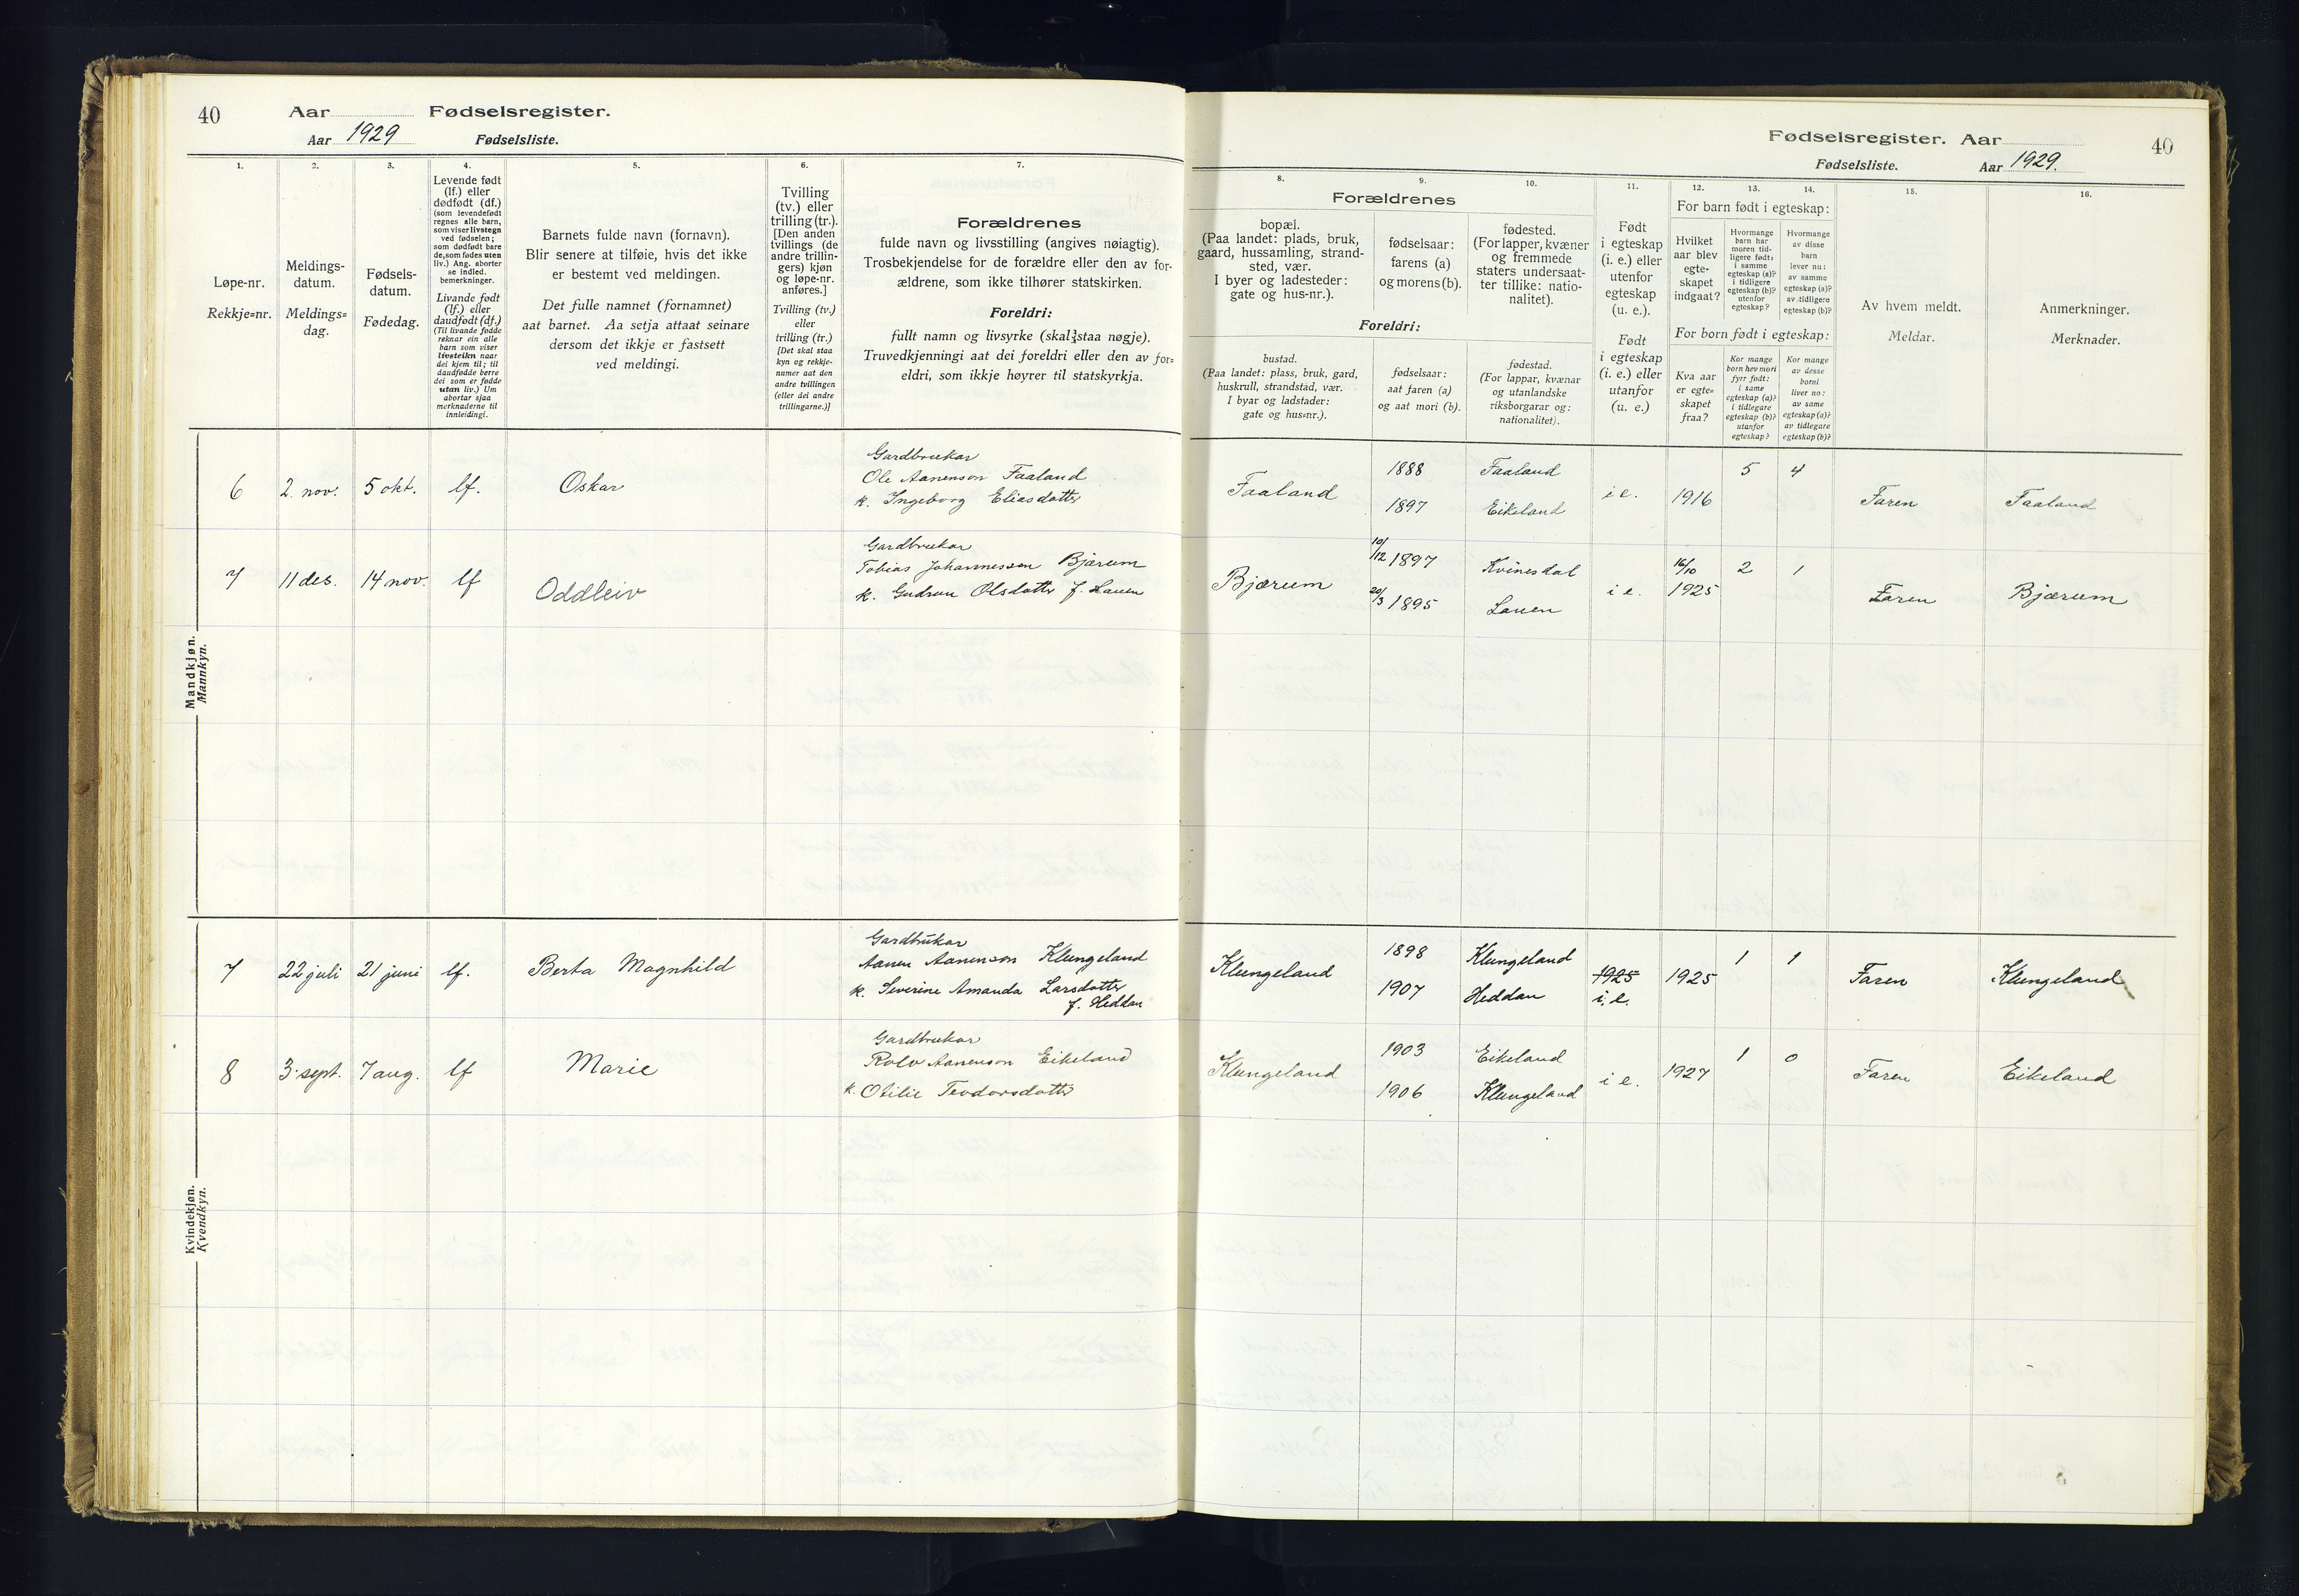 40 Aar Fødselsregister.
Aar 1929 Fødselsliste.
1. 2. 3. 4. 5. 6. 7.
Løpe-nr.
Rekkje=nr.
Meldings-
datum.
Meldings=
dag.
Fødsels-
datum.
Fødedag.
Levende født
(lf.) eller
dødfødt (df.)
(som levendefødt
regnes alle barn,
som viser livstegn
ved fødselen;
som dødfødt bare
de, som fødes uten
liv.) Ang. aborter
se indled.
bemerkninger.
Livande født
(lf.) eller
daudfødt (df.)
(Til livande fødde
reknar ein alle
barn som viser
livsteikn naar
dei kjem til; til
daudfødde berre
dei som er fødde
utan liv.) Um
abortar sjaa
merknaderne til
innleidingi.
Barnets fulde navn (fornavn).
Blir senere at tilføie, hvis det ikke
er bestemt ved meldingen.
Det fulle namnet (fornamnet)
aat barnet. Aa setja attaat seinare
dersom det ikkje er fastsett
ved meldingi.
Tvilling
(tv.) eller
trilling (tr.).
[Den anden
tvillings (de
andre trillin-
gers) kjøn
og løpe-nr.
anføres.]
Tvilling (tv.)
eller
trilling (tr.)
[Det skal staa
kyn og rekkje-
numer aat den
andre tvillingen
(eller dei andre
trillingarne.)]
Forældrenes
fulde navn og livsstilling (angives nøiagtig).
Trosbekjendelse for de forældre eller den av for-
ældrene, som ikke tilhører statskirken.
Foreldri:
fullt namn og livsyrke (skal staa nøgje).
Truvedkjenningi aat dei foreldri eller den av for=
eldri, som ikkje høyrer til statskyrkja.
Mandkjøn.
Mannkyn.
6 2. nov. 5 okt. lf. Oskar
Gardbrukar
Ole Aanenson Faaland
k. Ingeborg Eliasdotter
7 11 des. 14 nov. lf Oddleiv
Gardbrukar
Tobias Johannessen Bjærum
k. Gudrun Olsdotter f. Lauen
Kvindekjøn.
Kvendkyn.
7 22 juli 21 juni lf. Berta Magnhild
Gardbrukar
Aanen Aanenson Klungeland
k. Severine Amanda Larsdotter
f. Heddan
8 3. sept. 7 aug. lf Marie
Gardbrukar
Rolv Aanenson Eikeland
k. Otilie Teodorsdotter
Fødselsregister. Aar 40
Fødselsliste. Aar 1929.
8. 9. 10. 11. 12. 13. 14. 15. 16.
Forældrenes
bopæl.
(Paa landet: plads, bruk,
gaard, hussamling, strand-
sted, vær.
I byer og ladesteder:
gate og hus-nr.).
fødselsaar:
farens (a)
og morens (b).
fødested.
(For lapper, kvæner
og fremmede
staters undersaat-
ter tillike: natio-
nalitet).
Foreldri:
bustad.
(Paa landet: plass, bruk, gard,
huskrull, strandstad, vær.
I byar og ladstader:
gate og hus=nr.).
fødselsaar:
aat faren (a)
og aat mori (b).
fødestad.
(For lappar, kvænar
og utanlandske
riksborgarar og:
nationalitet).
Født
i egteskap
(i. e.) eller
utenfor
egteskap
(u. e.).
Født
i egteskap
(i. e.) eller
utanfor
(u. e.)
For barn født i egteskap:
Hvilket
aar blev
egte-
skapet
indgaat?
Hvormange
barn har
moren tid-
ligere født:
i samme
egteskap (a)?
i tidligere
egteskap (b)?
utenfor
egteskap?
Hvormange
av disse
barn
lever nu:
av samme
egteskap (a)?
av tidligere
egteskap (b)?
For born født i egteskap:
Kva aar
er egte=
skapet
fraa?
Kor mange
born hev mori
fyrr født:
i same
egteskap (a)?
i tidlegare
egteskap (b)?
utanfor
egteskap?
Kor mange
av desse
borni
liver no:
av same
egteskap (a)?
av tidlegare
egteskap (b)?
Av hvem meldt.
Meldar.
Anmerkninger.
Merknader.
Faaland
1888 Faaland
1897 Eikeland
i e. 1916 5 4 Faren Faaland
Bjærum
10/12 1897 Kvinesdal
20/3 1895 Lauen
i e. 16/10 1925 2 1 Faren Bjærum
Klungeland
1898 Klungeland
1907 Heddan
1925
i. e.
1925 1 1 Faren Klungeland
Klungeland
1903 Eikeland
1906 Klungeland
i e. 1927 1 0 Faren Eikeland